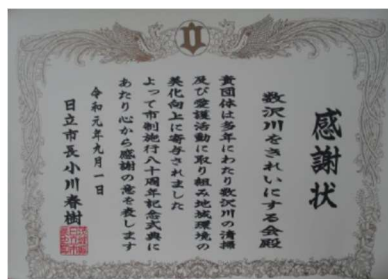 感謝状
数沢川をきれいにする会殿
貴団体は多年にわたり数沢川の清掃
及び愛護活動に取り組み地域環境の
美化向上に寄与されました
よって市制施行八十周年記念式典に
あたり心から感謝の意を表します
令和元年九月一日
日立市長小川春樹